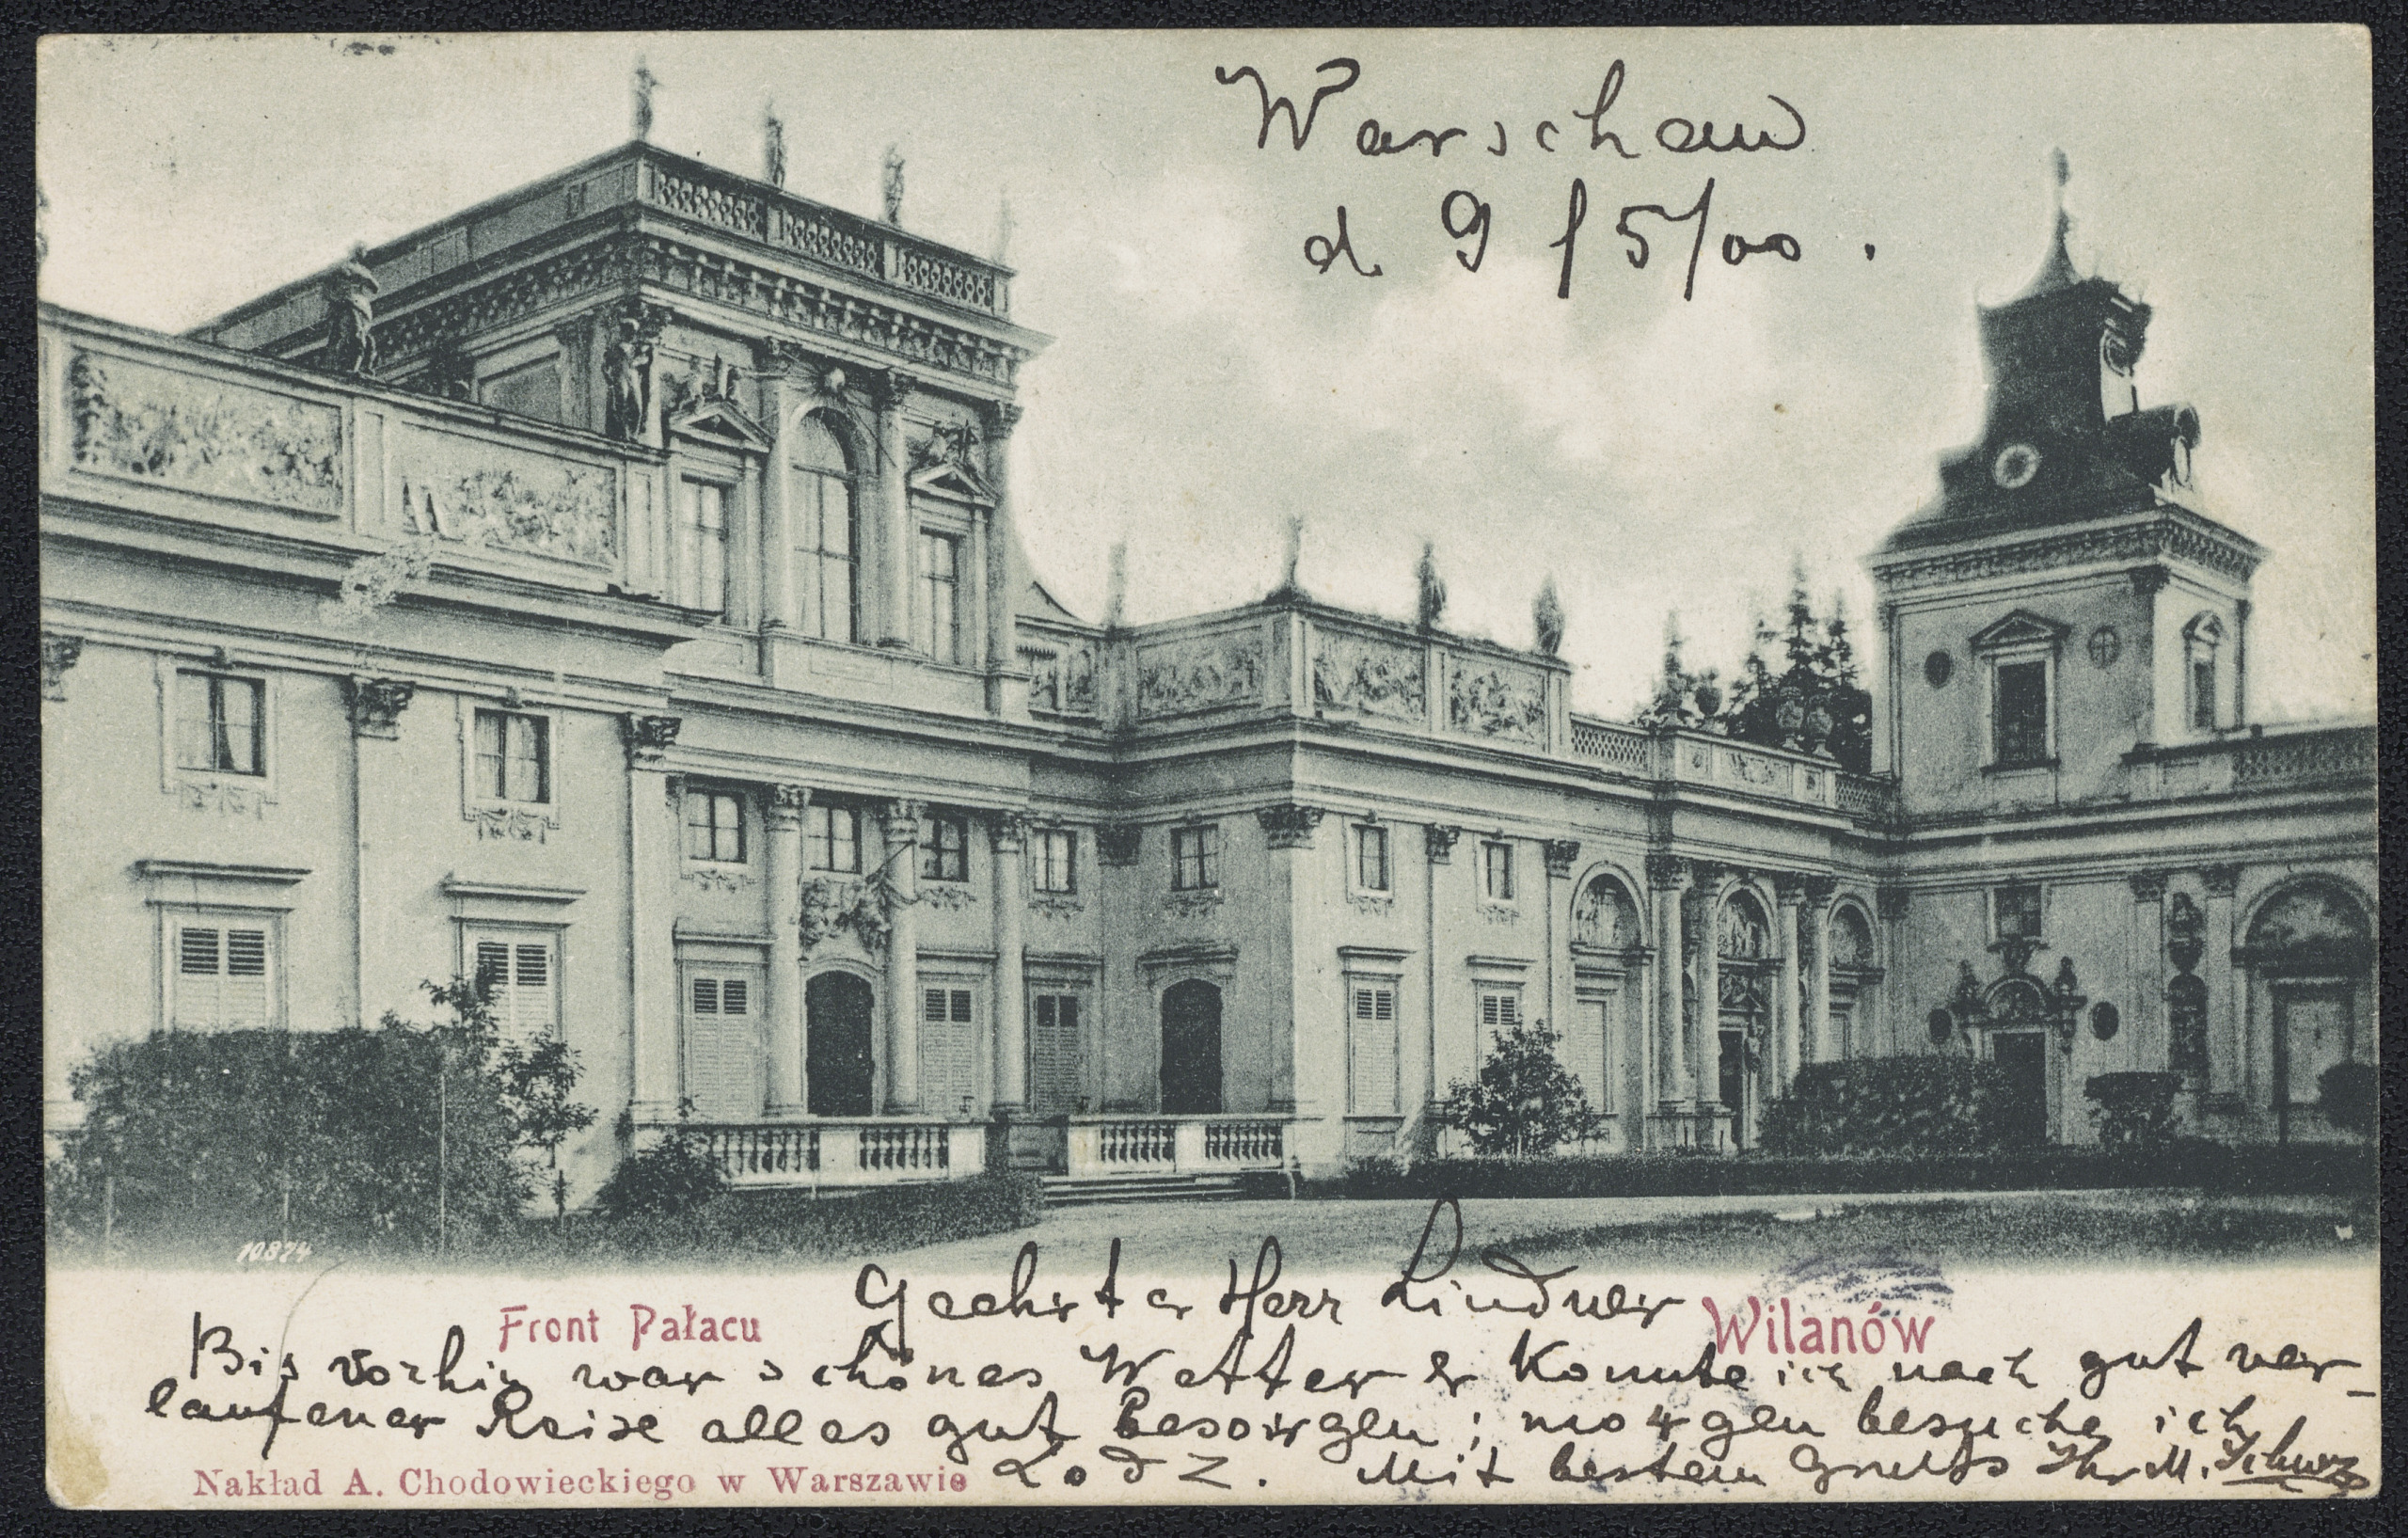 Warschau
d. 9/5/00.
10874
Geehrter Herr Lindner
Front Pałacu
Wilanów
Bis vorhin war schönes Wetter & konnte ich nach gut ver-
laufener Reise alles gut besorgen; morgen besuche ich
Lodz. Mit bestem Gruss Ihr M.
Nakład A. Chodowieckiego w Warszawie